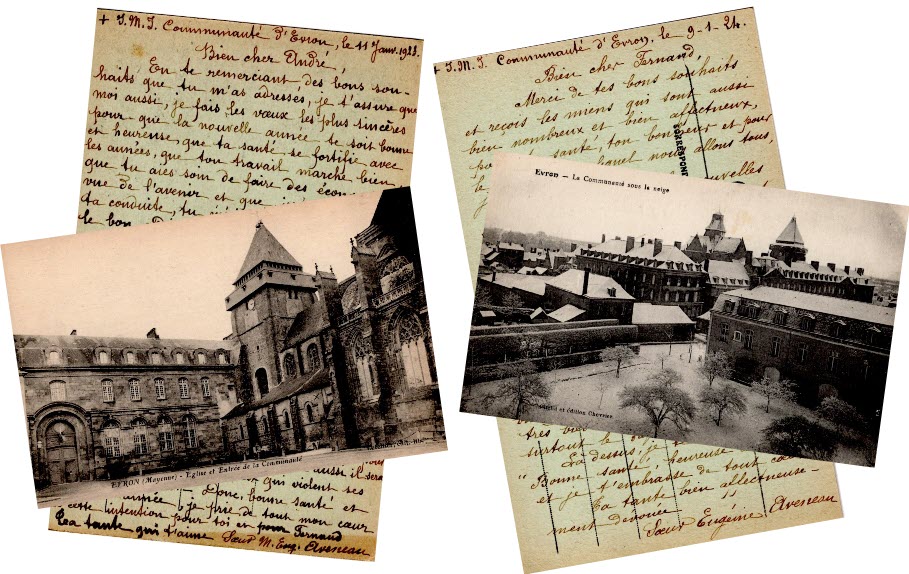 + J. M. J. Communauté d'Evron, le 11 Janv. 1923.
Bien cher André,
En te remerciant des bons sou-
haits que tu m'as adressés, je t'assure que
moi aussi, je fais les vœux les plus sincères
pour que la nouvelle année te soit bonne
et heureuse, que ta santé se fortifie avec
les années, que ton travail marche bien
que tu aies soin de faire des écon
vue de l'avenir et que
ta conduite, tu
le bon
EVRON (Mayenne) - Église et Entrée de la Communauté
aussi il sera
qui violent ses
année - Donc, bonne santé et
cette intention pour toi et pour Fernand
La tante qui t'aime Sœur M. Eug. Aveneau
+ J. M. J. Communauté d'Evron, le 9-1-24.
Bien cher Fernand,
Merci de tes bons souhaits
et reçois les miens qui sont aussi
bien nombreux et bien affectueux,
santé, ton bonheur et pour
le quel nous allons tous
nouvelles
CORRESPON
Evron — La Communauté sous la neige
édition Chevrier
très
surtout le
Là dessus, je
"Bonne santé heureuse
et je t'embrasse de tout cœur
La tante bien affectueuse-
ment dévouée"
Sœur Eugénie Aveneau